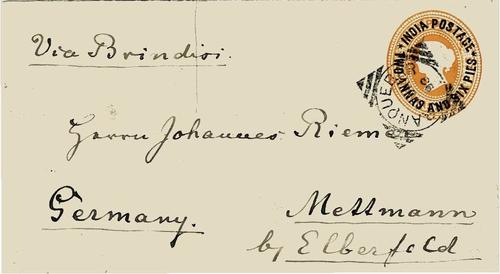 Via Brindisi.
INDIA POSTAGE
TWO ANNAS AND SIX PIES
Herrn Johannes Riem
Germany. Mettmann
by Elberfeld